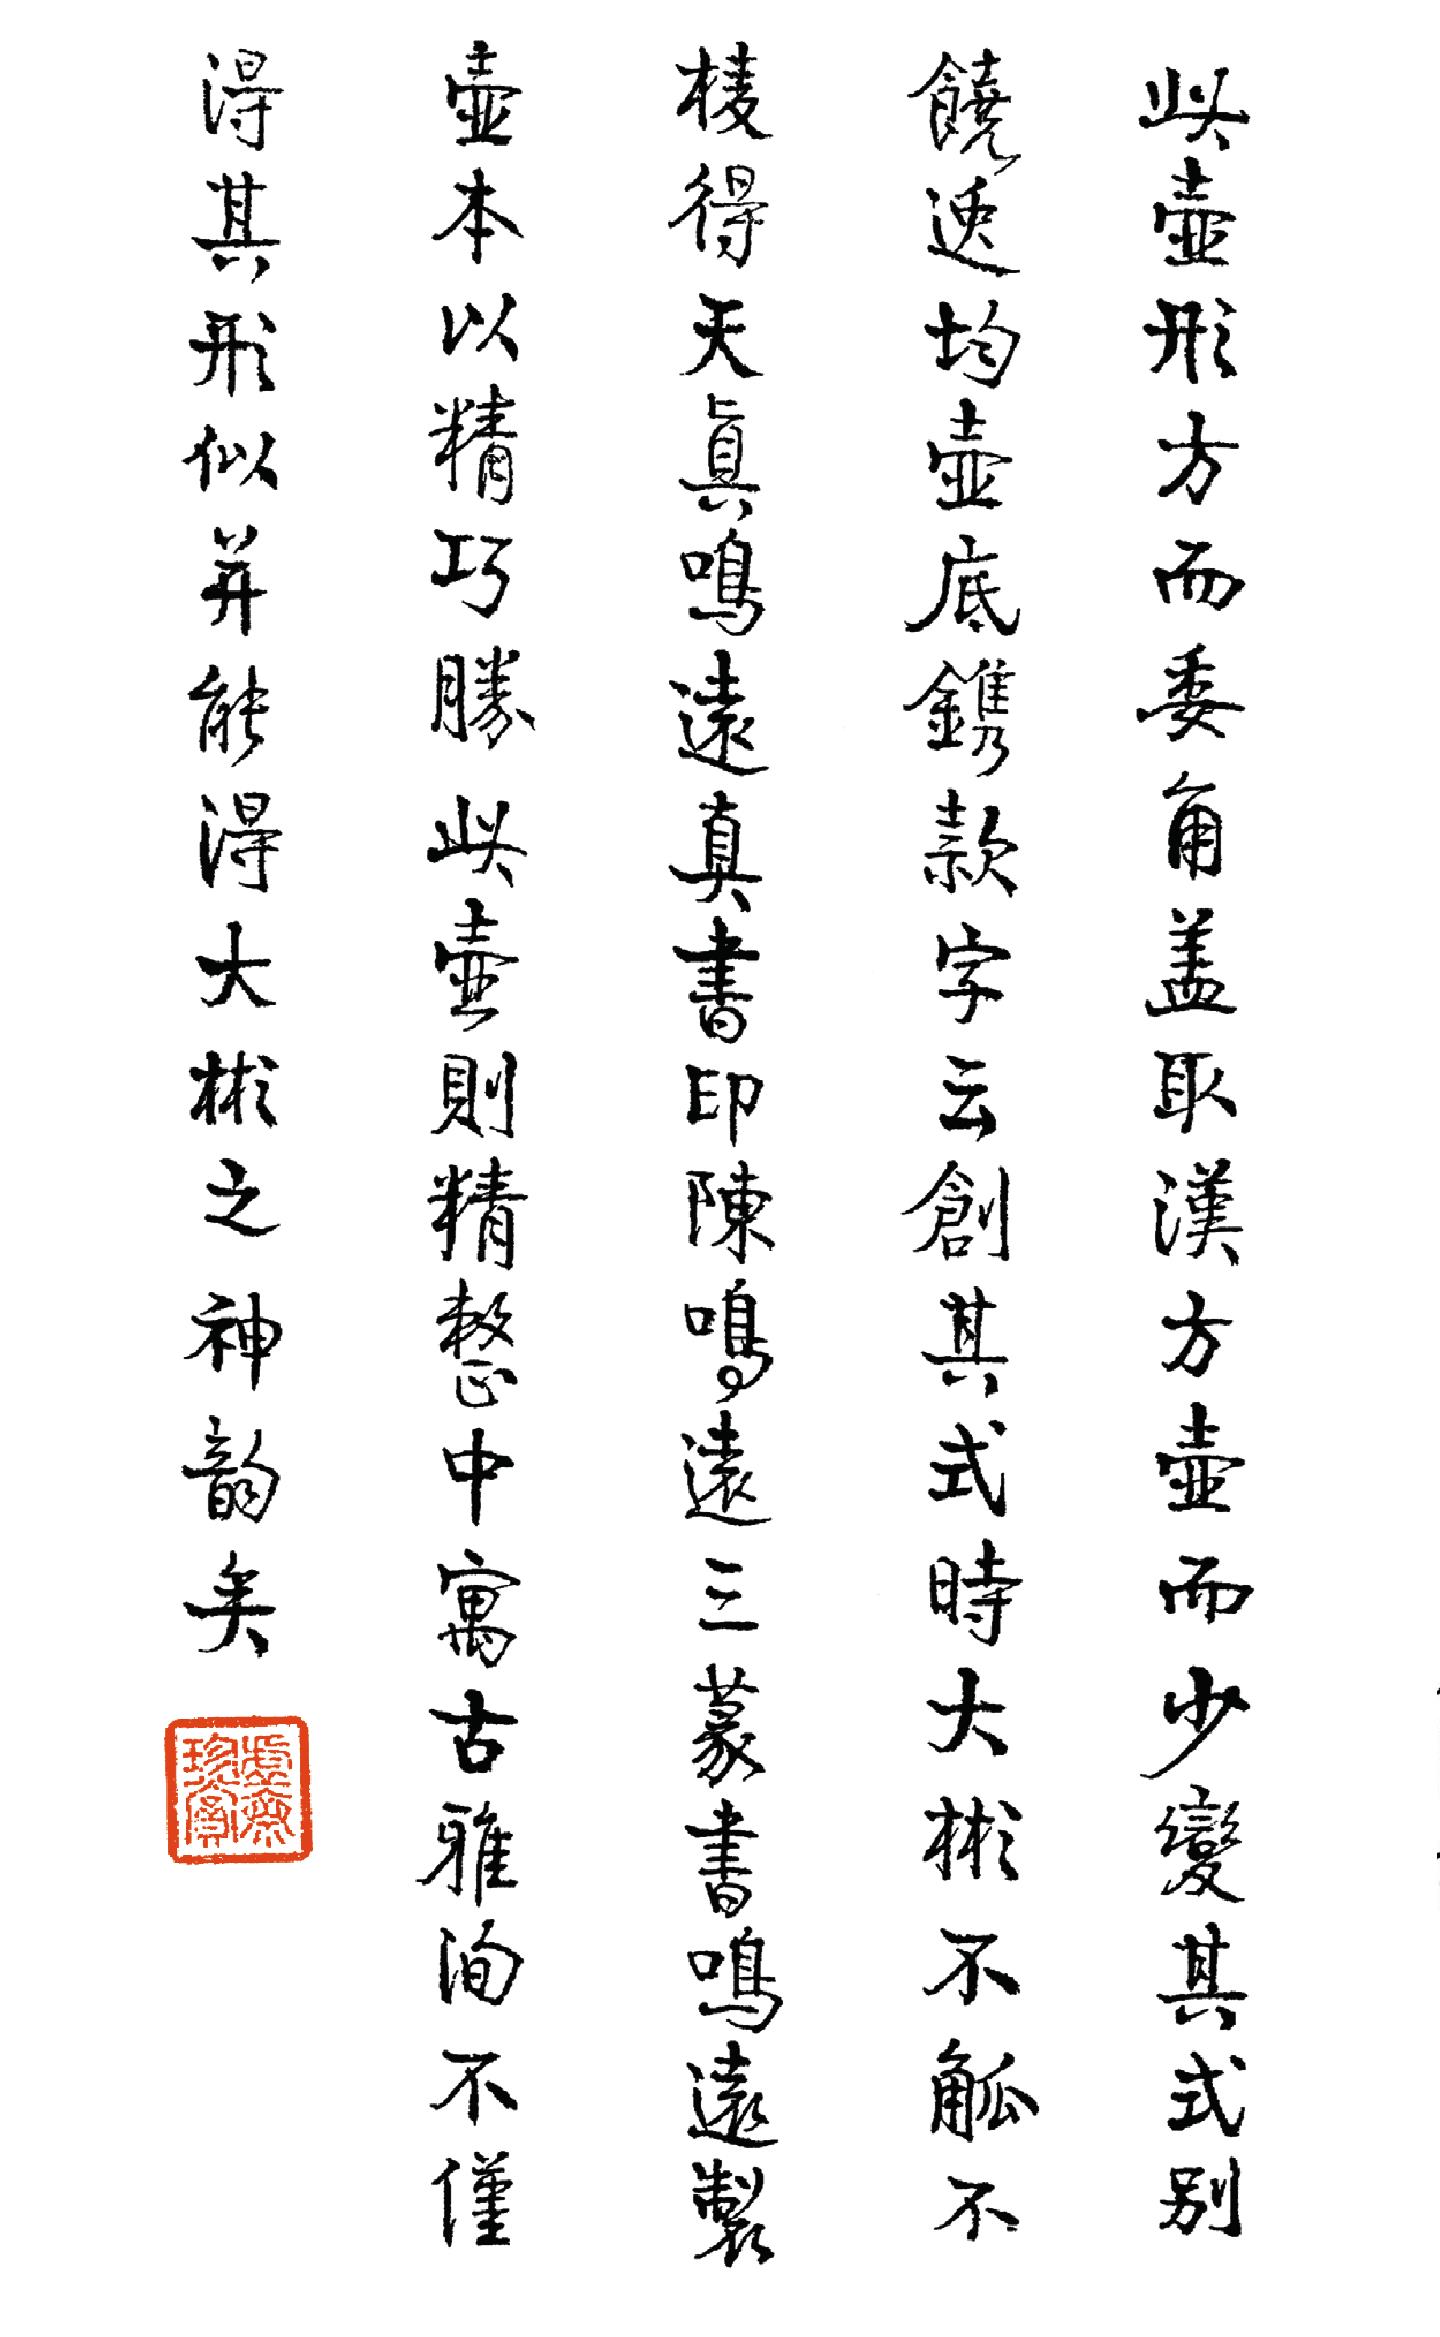 此壺形方而委角蓋取漢方壺而少變其式別
饒逸均壺底鐫款字云創其式時大彬不觚不
棱得天真鳴遠真書印陳鳴遠三篆書鳴遠製
壺本以精巧勝此壺則精整中寓古雅洵不僅
得其形似并能得大彬之神韵矣